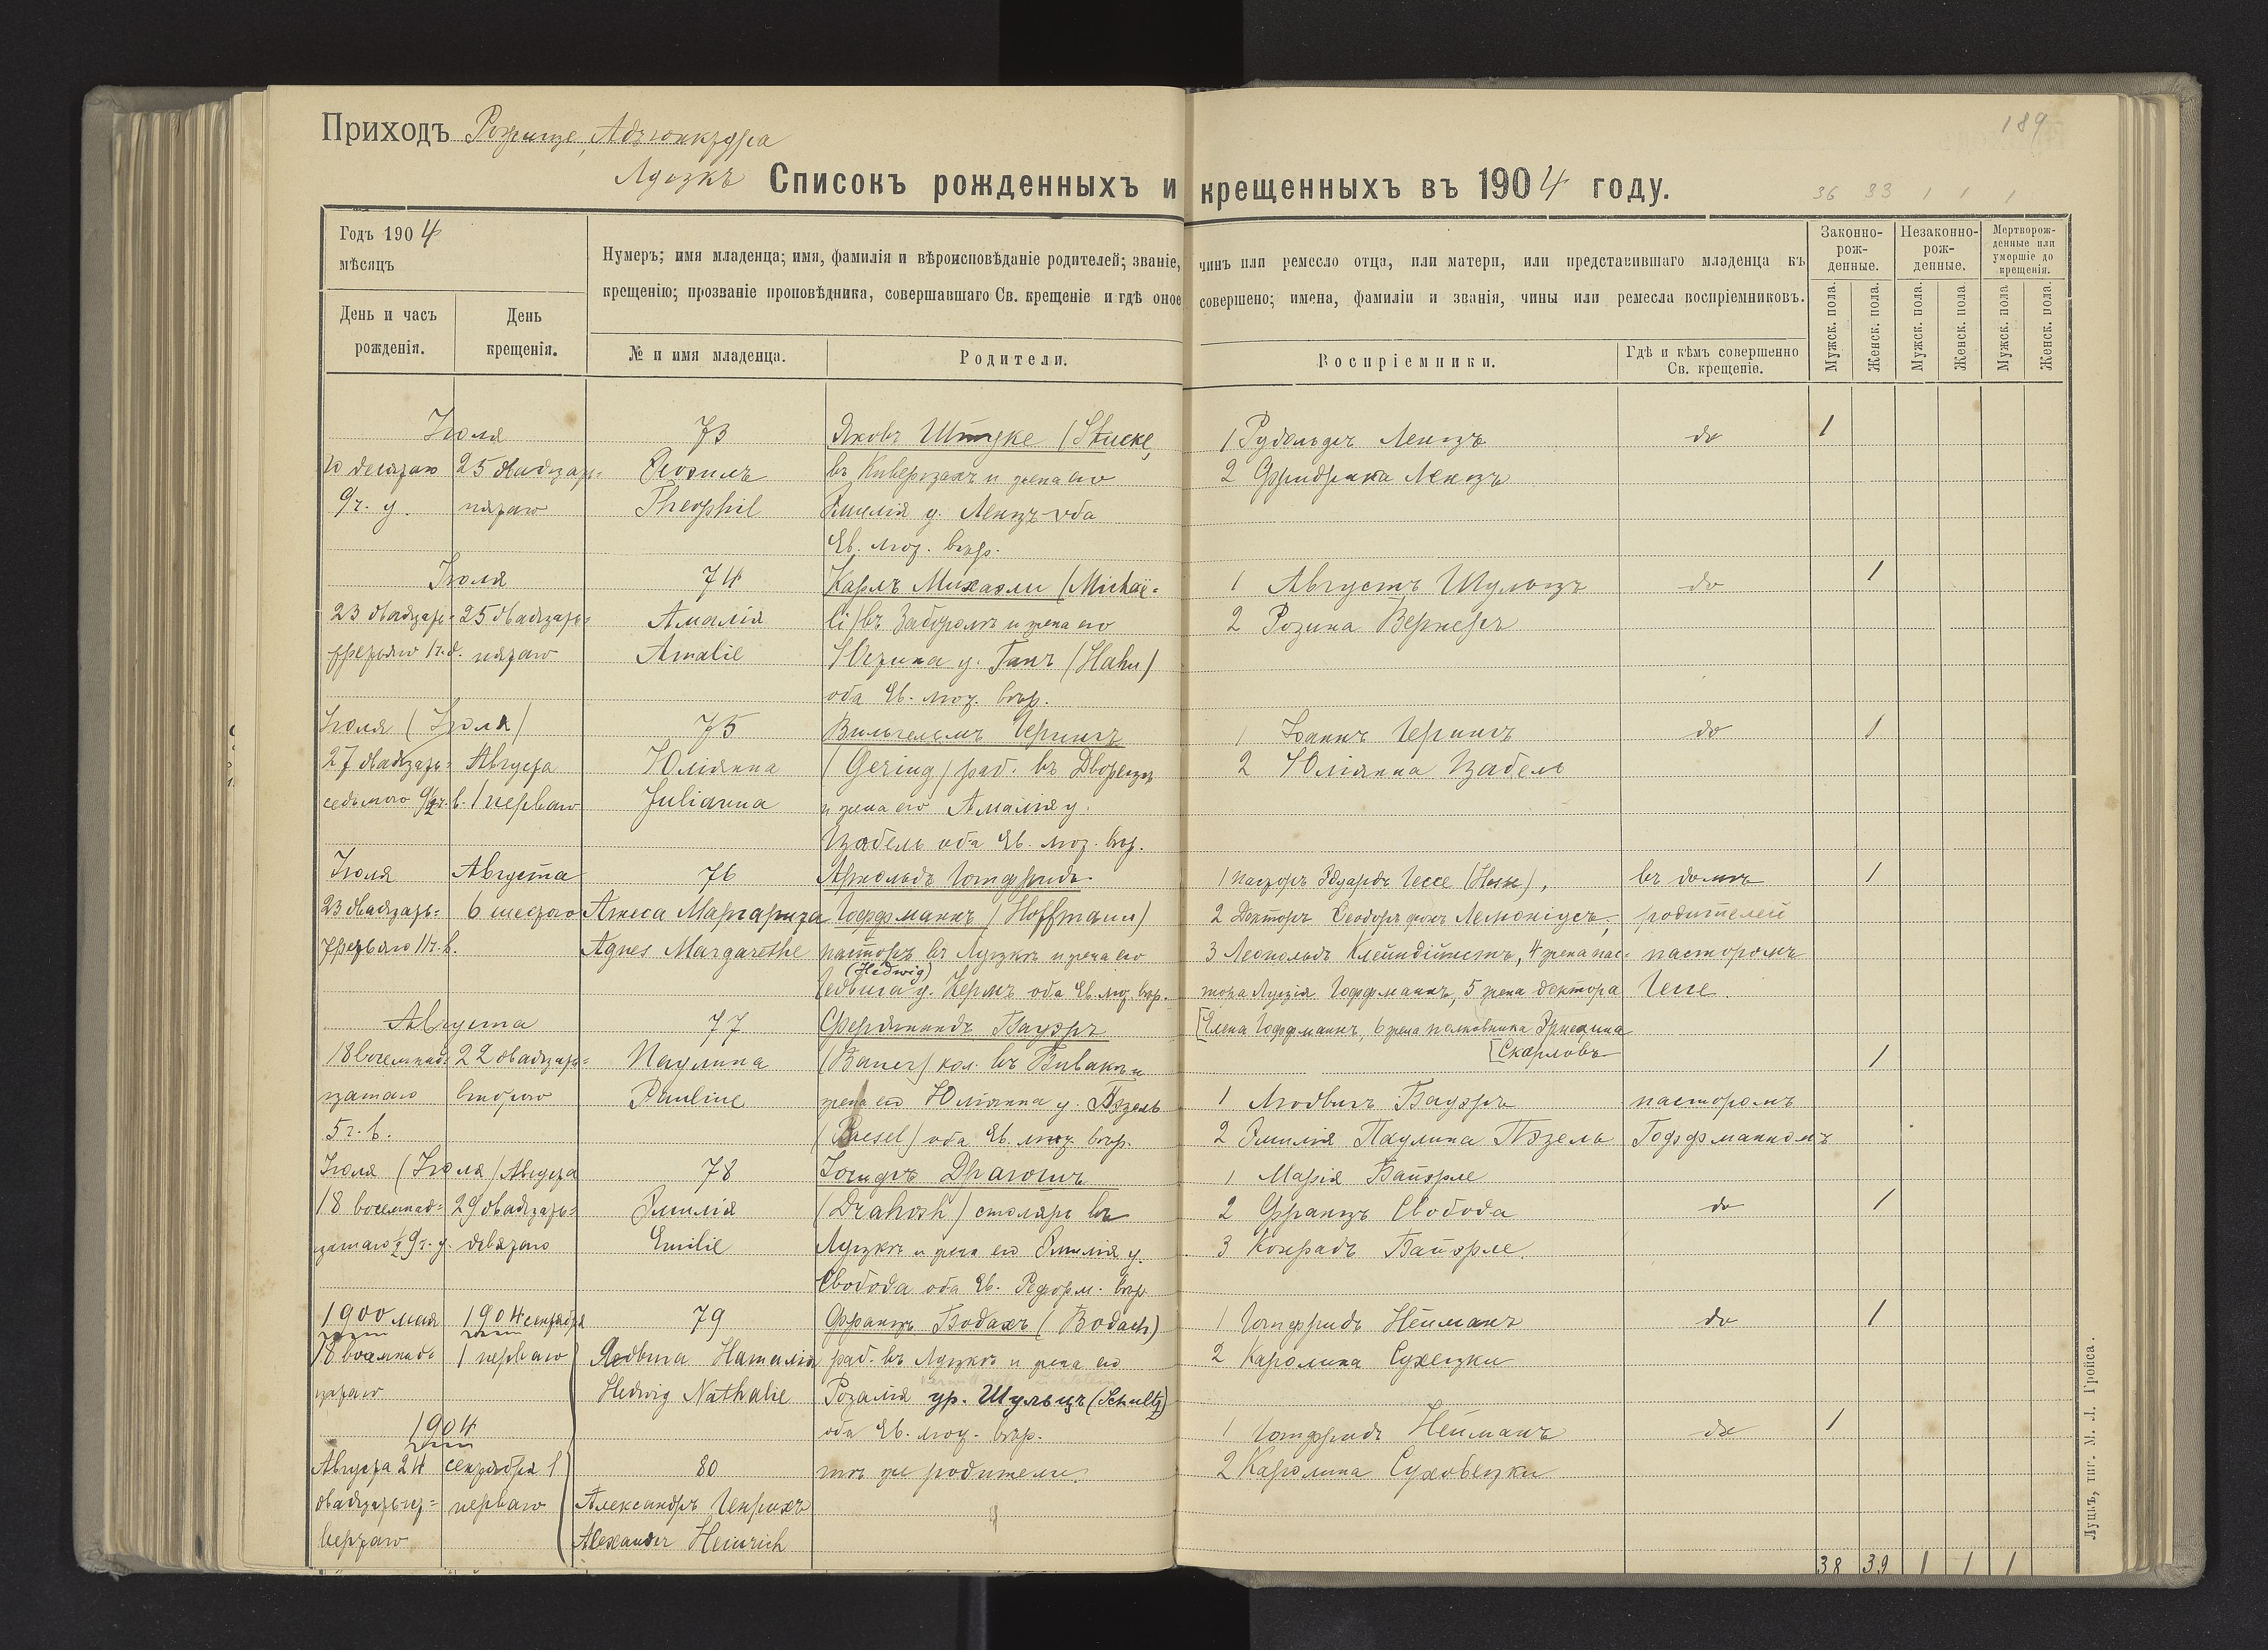 189
Приходъ Рожище, Адъюнктура
Луцкъ
Списокъ рожденныхъ и крещенныхъ въ 1904 году.
36 33 1 1 1
Годъ 1904
мѣсяцъ
День и часъ рожденія.
День крещенія.
Нумеръ; имя младенца; имя, фамилія и вѣроисповѣданіе родителей; званіе, чинъ или ремесло отца, или матери, или представившаго младенца къ
крещенію; прозваніе проповѣдника, совершавшаго Св. крещеніе и гдѣ оное совершено; имена, фамиліи и званія, чины или ремесла воспріемниковъ.
№ и имя младенца.
Родители.
Воспріемники.
Гдѣ и кѣмъ совершенно Св. крещеніе.
Законно-рож-денные.
Незаконно-рож-денные.
Мертворож-денные или умершіе до крещенія.
Мужск. пола. Женск. пола. Мужск. пола. Женск. пола Мужск. пола Женск. пола.
Іюля 73 Яковъ Штуке (Stucke, 1 Рудольфъ Ленцъ do 1
10 десятаго 25 двадцать- Теофилъ въ Киверцахъ и жена его 2 Фридрика Ленцъ
9 ч. у. пятаго Theophil Эмилія у. Ленцъ оба
Ев. лют. вѣр.
Іюля 74 Карлъ Михаэли (Michae- 1 Августъ Шульцъ do 1
23 двадцать- 25 двадцать- Амалія li) въ Заборолѣ и жена его 2 Розина Вернеръ
третьяго 1 ч. д. пятаго Amalie у. Ганъ (Hahn)
оба Ев. лют. вѣр.
Іюля (Іюля) 75 Вильгельмъ Герингъ 1 Іоаннъ Герингъ do 1
27 двадцать- Августа Юліанна (Gering) раб. въ Дворецъ 2 Юліанна Цабель
седьмого 9½ ч. в. 1 перваго Julianna и жена его Амалія у.
Цабель оба Ев. лют. вѣр.
Іюля Августа 76 Арнольдъ Готфридъ 1 пасторъ Эдуардъ Гессе (Hesse), въ домѣ 1
23 двадцать- 6 шестаго Агнеса Маргарита Гоффманнъ (Hoffmann) 2 Докторъ Теодоръ фонъ Лемоніусъ, родителей
третьяго 11 ч. в. Agnes Margarethe пасторъ въ Луцкѣ и жена его 3 Леопольдъ Клейндійнстъ, 4 жена пас- пасторомъ
(Hedwig)
Гедвига у. Кермъ оба Ев. лют. вѣр. тора Луція Гоффманнъ, 5 жена доктора Гессе.
Августа 77 Фердинандъ Бауэръ [Елена Гоффманнъ, 6 жена полковника
[Скарловъ 1
18 восемнад- 22 двадцать- Паулина (Bauer) кол. въ и
цатаго втораго Pauline жена его Юліанна у. Пэзель 1 Людвигъ Бауэръ пасторомъ
5 ч. в. (Paesel) оба Ев. лют. вѣр. 2 Эмилія Паулина Пэзель Гоффманномъ
Іюля (Іюля) Августа 78 Іосифъ Драгошъ 1 Марія Байэрле
18 восемнад- 29 двадцать- Эмилія (Drahosh) столяръ въ 2 Францъ Свобода do 1
цатаго ½9 ч. у. девятаго Emilie Луцкѣ и жена его Эмилія у. 3 Конрадъ Байэрле.
Свобода оба Ев. Реформ. вѣр.
1900 мая 1904 сентября 79 Францъ Бодахъ (Bodach) 1 Готфридъ Нейманъ do 1
18 восемнад- 1 перваго Ядвига Наталія раб. въ Луцкѣ и жена его 2 Каролина Сухецки
цатаго Hedwig Nathalie Розалія ур. Шульцъ (Schultz)
1904 оба Ев. лют. вѣр. 1 Готфридъ Нейманъ do 1
Августа 24 сентября 1 80 тѣ же родители. 2 Каролина Суховецки
двадцать чет- перваго Александръ Генрихъ
вертаго Alexander Heinrich
38 39 1 1 1
Луцкъ, тип. М. Л. Гройса.